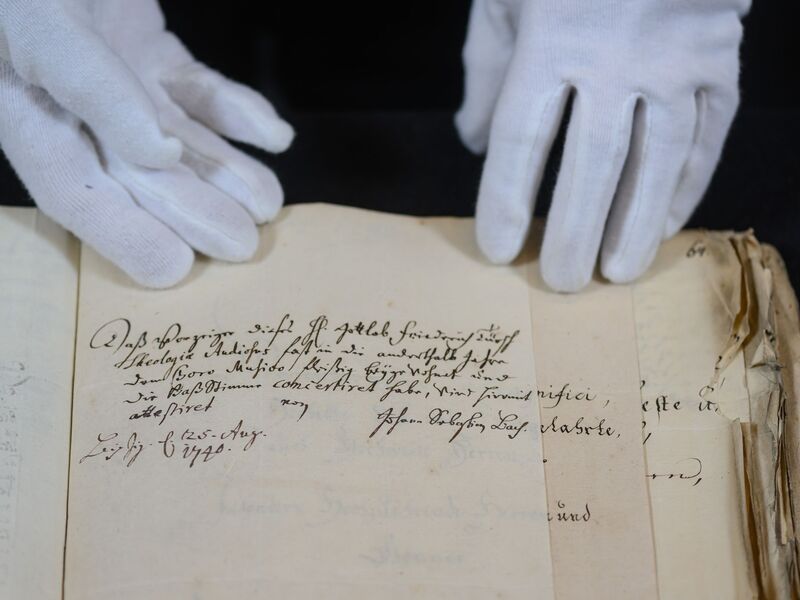 64
Daß Vorzeiger dieses H. Gottlob Friedrich Türck
Theologiæ Studiosus fast in die anderthalb Jahre
dem Choro Musico fleißig beygewohnet und
die Baß Stimme concertiret habe, wird hiermit
attestiret von
Johann Sebastian Bach.
Leipzig. d 25. Aug.
1740.
nifici,
und